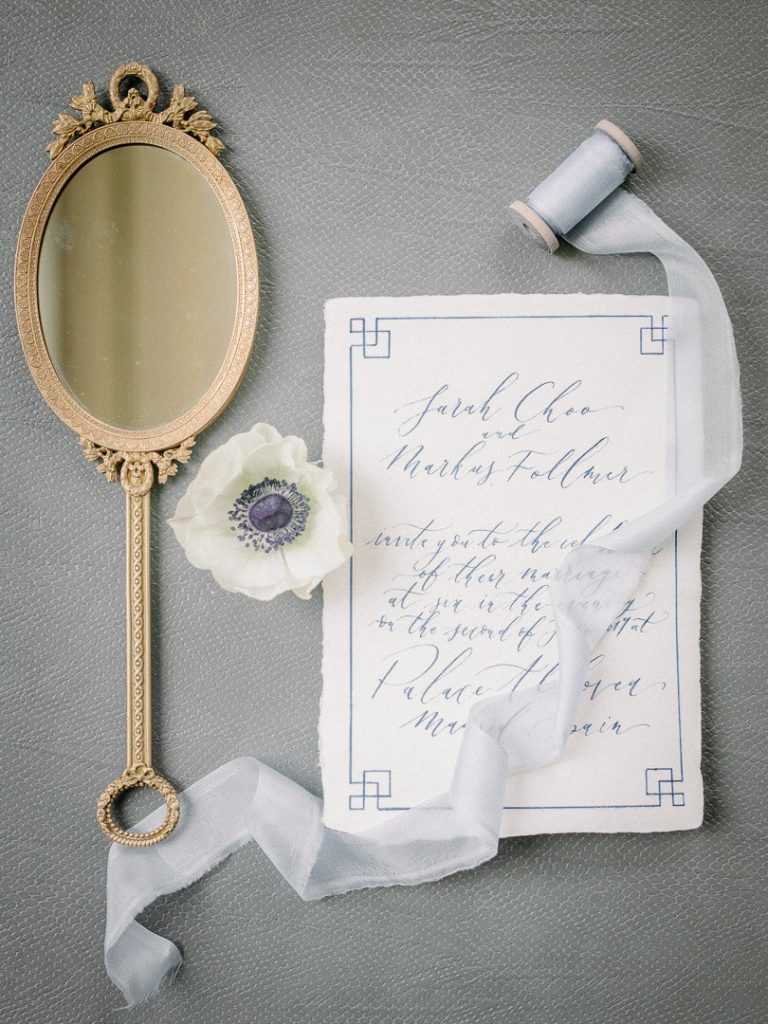 Sarah Choo
and
Markus Follmer
invite you to the
of their marriage
at six in the evening
on the second of at
Palace
Spain